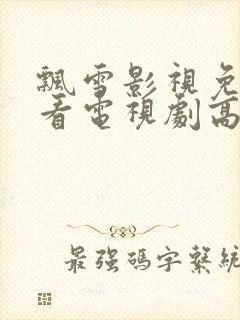 飄雪影視免
看電視劇高
最強碼字繫統